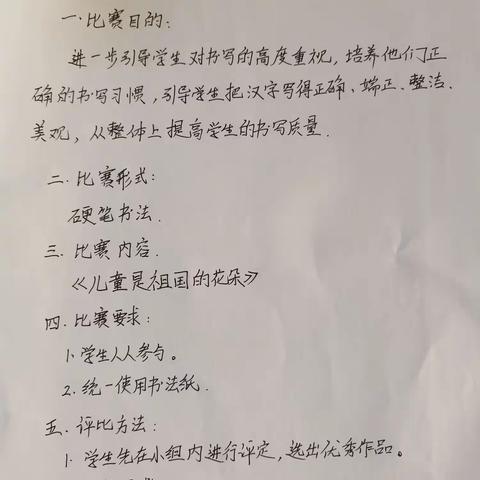 一.比赛目的:
进一步引导学生对书写的高度重视,培养他们正
确的书写习惯,引导学生把汉字写得正确、端正、整洁、
美观,从整体上提高学生的书写质量.
二.比赛形式:
硬笔书法.
三.比赛内容.
《儿童是祖国的花朵》
四.比赛要求:
1.学生人人参与。
2.统一使用书法纸.
五.评比方法:
1.学生先在小组内进行评定,选出优秀作品。